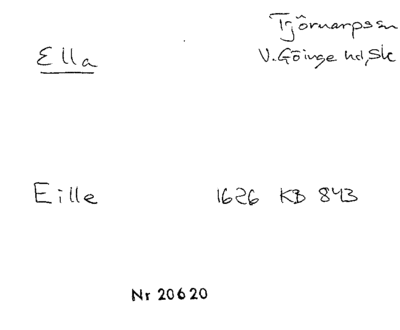 Ella
Tjörnarpssn
V. Göinge hd, Sk
Eille 1626 KB 843
Nr 20620